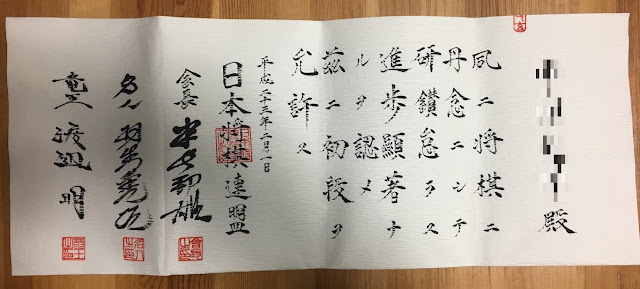 殿
夙ニ将棋ニ
丹念ニシテ
研鑽怠ラス
進歩顯著ナ
ルヲ認メ
茲ニ初段ヲ
允許ス
平成二十三年二月一日
日本将棋連盟
会長 米長邦雄
名人 羽生善治
竜王 渡辺明